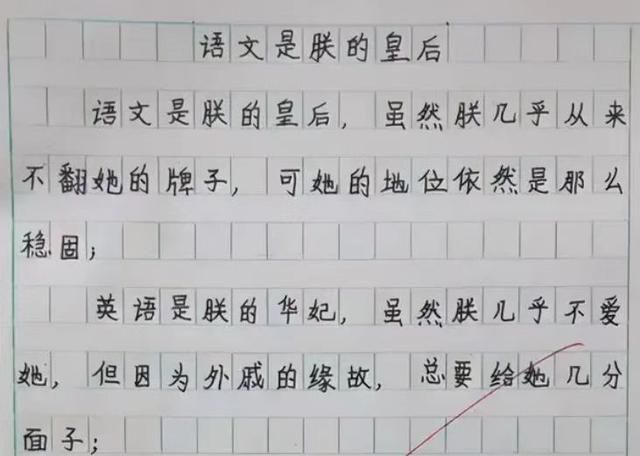 语文是朕的皇后
语文是朕的皇后，虽然朕几乎从来
不翻她的牌子，可她的地位依然是那么
稳固；
英语是朕的华妃，虽然朕几乎不爱
她，但因为外戚的缘故，总要给她几分
面子；